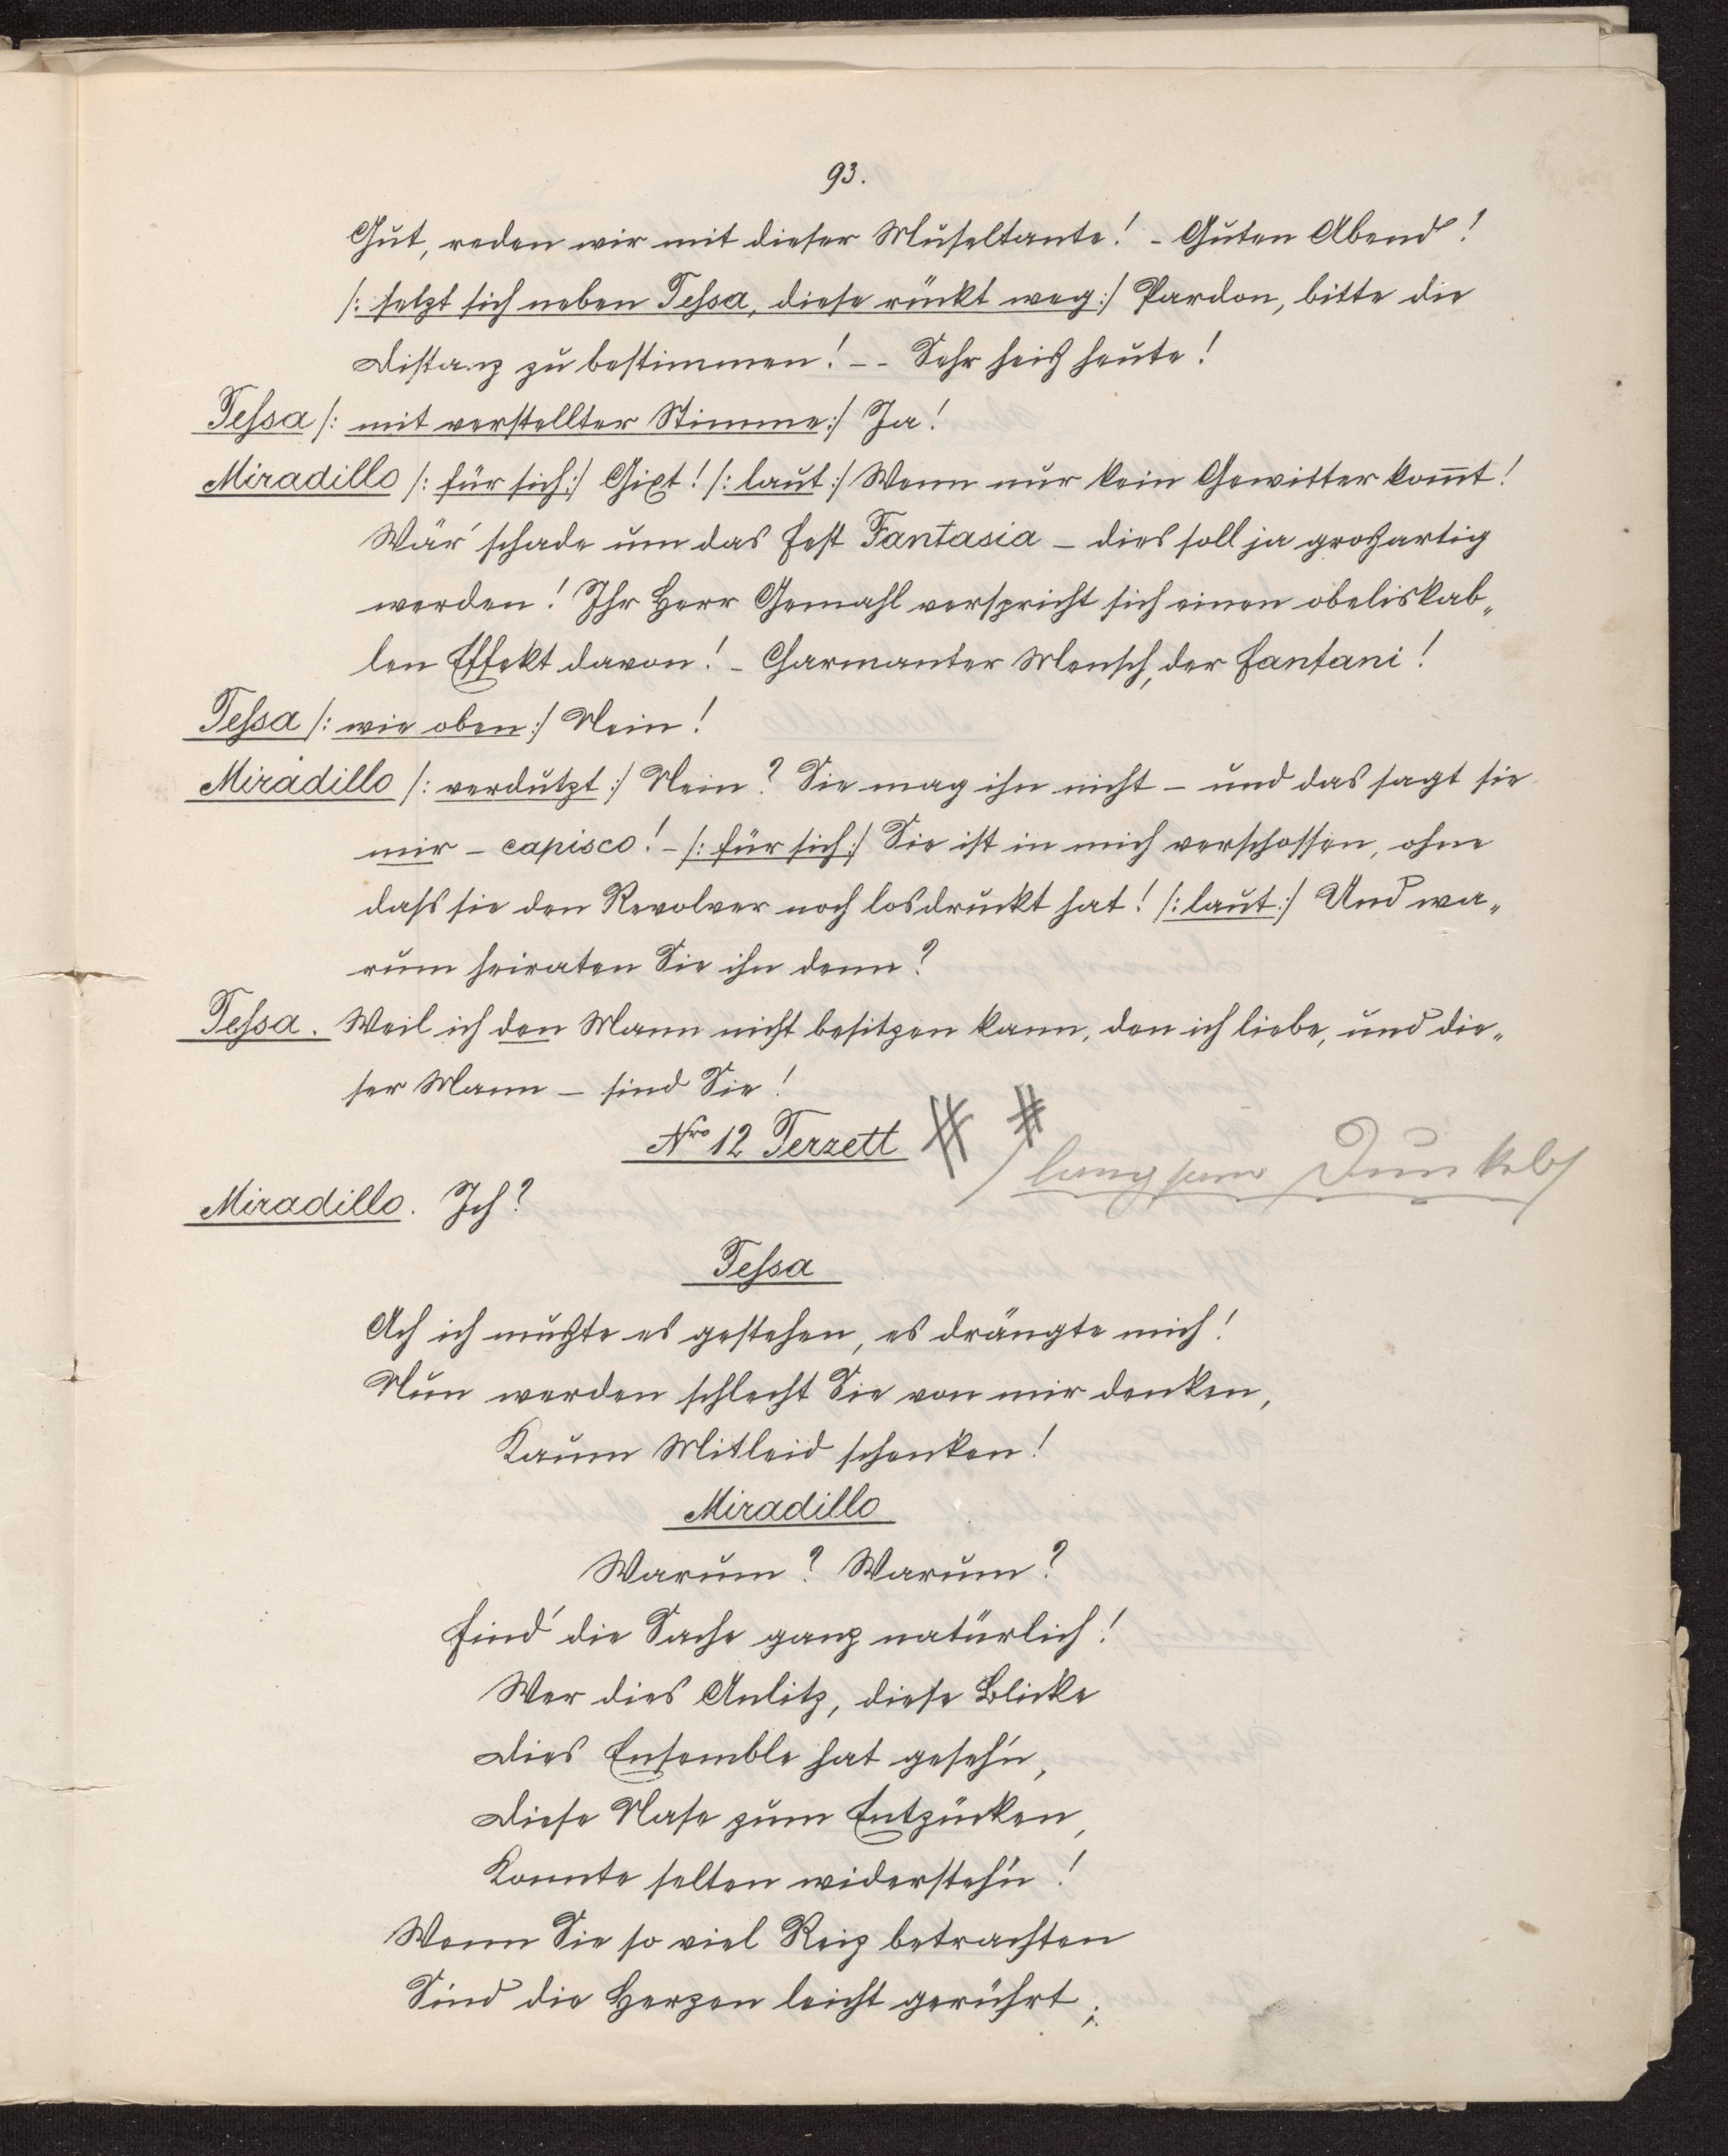 93.
Gut, reden wir mit dieser Museltante! - Guten Abend!
/: setzt sich neben Tessa, diese rückt weg :/ Pardon, bitte die
Distanz zu bestimmen! -- Sehr heiß heute!
Tessa /: mit verstellter Stimme :/ Ja!
Miradillo /: für sich :/ Gixt! /: laut :/ Wenn nur kein Gewitter kom̄t!
Wär' schade um das Fest Fantasia - dies soll ja großartig
werden! Ihr Herr Gemahl verspricht sich einen obeliskab„
len Effekt davon! - Charmanter Mensch, der Fantani!
Tessa /: wie oben :/ Nein!
Miradillo /: verdutzt :/ Nein? Sie mag ihn nicht - und das sagt sie
mir - capisco! - /: für sich :/ Sie ist in mich verschossen, ohne
dass sie den Revolver noch losdruckt hat! /: laut :/ Und wa„
rum heiraten Sie ihn denn?
Tessa. Weil ich den Mann nicht besitzen kann, den ich liebe, und die„
ser Mann - sind Sie!
Nro 12 Terzett # #
/ langsam Dunkel /
Miradillo. Ich?
Tessa
Ach ich mußte es gestehen, es drängte mich!
Nun werden schlecht Sie von mir denken,
Kaum Mitleid schenken!
Miradillo
Warum? Warum?
Find' die Sache ganz natürlich!
Wer dies Anlitz, diese Blicke
Dies Ensemble hat geseh'n,
Diese Nase zum Entzücken,
Konnte selten widersteh'n!
Wenn Sie so viel Reiz betrachten
Sind die Herzen leicht gerührt;